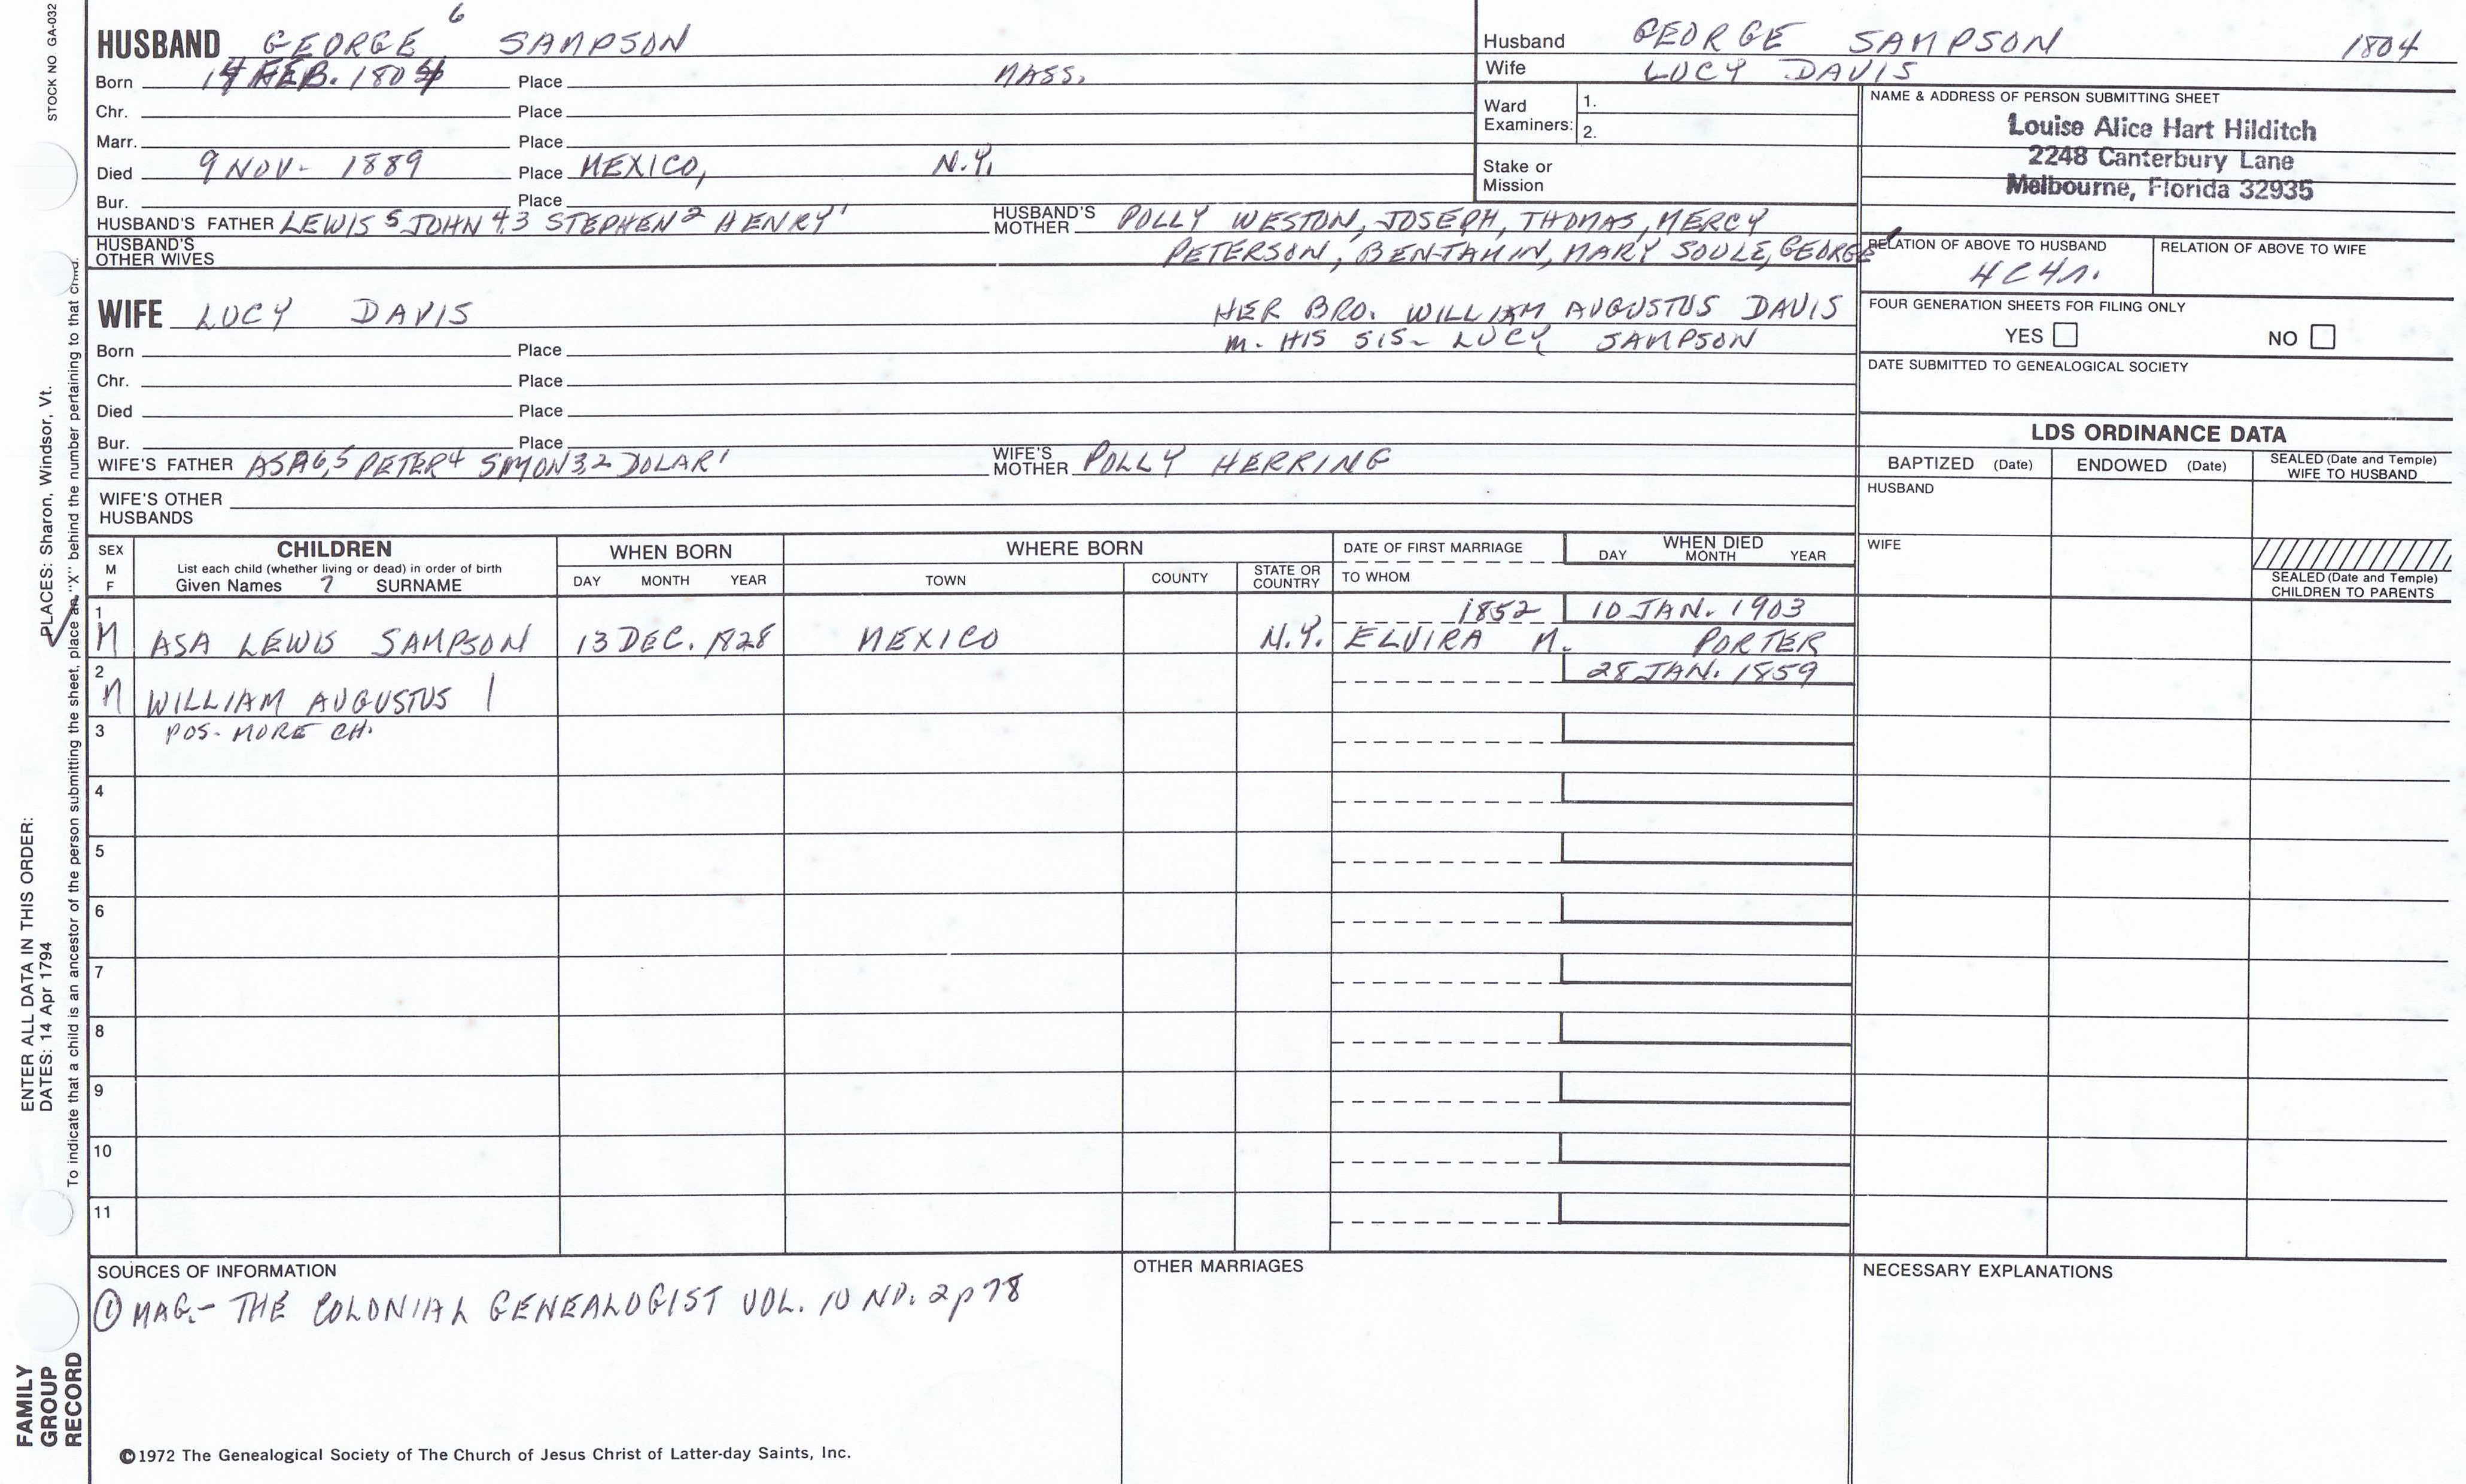 STOCK NO GA-032
PLACES: Sharon, Windsor, Vt.
ENTER ALL DATA IN THIS ORDER:
DATES: 14 Apr 1794
To indicate that a child is an ancestor of the person submitting the sheet, place an "X" behind the number pertaining to that child.
FAMILY
GROUP
RECORD
6
HUSBAND GEORGE SAMPSON
Born 14 FEB. 1804 Place MASS.
Chr. Place
Marr. Place
Died 9 NOV- 1889 Place MEXICO, N.Y.
Bur. Place
HUSBAND'S FATHER LEWIS 5 JOHN 4,3 STEPHEN 2 HENRY 1 HUSBAND'S MOTHER POLLY WESTON, JOSEPH, THOMAS, MERCY
HUSBAND'S OTHER WIVES PETERSON, BENJAMIN, MARY SOULE, GEORGE
WIFE LUCY DAVIS HER BRO. WILLIAM AUGUSTUS DAVIS
m. HIS SIS- LUCY SAMPSON
Born Place
Chr. Place
Died Place
Bur. Place
WIFE'S FATHER ASA 6,5 PETER 4 SIMON 3,2 DOLAR 1 WIFE'S MOTHER POLLY HERRING
WIFE'S OTHER
HUSBANDS
Husband GEORGE SAMPSON 1804
Wife LUCY DAVIS
Ward
Examiners:
1.
2.
Stake or
Mission
NAME & ADDRESS OF PERSON SUBMITTING SHEET
Louise Alice Hart Hilditch
2248 Canterbury Lane
Melbourne, Florida 32935
RELATION OF ABOVE TO HUSBAND RELATION OF ABOVE TO WIFE
4C4r.
FOUR GENERATION SHEETS FOR FILING ONLY
YES NO
DATE SUBMITTED TO GENEALOGICAL SOCIETY
LDS ORDINANCE DATA
BAPTIZED (Date) ENDOWED (Date) SEALED (Date and Temple)
WIFE TO HUSBAND
HUSBAND
WIFE
SEALED (Date and Temple)
CHILDREN TO PARENTS
SEX
M
F
CHILDREN
List each child (whether living or dead) in order of birth
Given Names 7 SURNAME
WHEN BORN
DAY MONTH YEAR
WHERE BORN
TOWN COUNTY STATE OR COUNTRY
DATE OF FIRST MARRIAGE
TO WHOM
WHEN DIED
DAY MONTH YEAR
1 1852 10 JAN. 1903
M ASA LEWIS SAMPSON 13 DEC. 1828 MEXICO N.Y. ELVIRA M. PORTER
2 28 JAN. 1859
M WILLIAM AUGUSTUS |
3 POS- MORE CH.
4
5
6
7
8
9
10
11
SOURCES OF INFORMATION
① MAG.- THE COLONIAL GENEALOGIST VOL. 10 NO. 2 p 78
OTHER MARRIAGES
NECESSARY EXPLANATIONS
©1972 The Genealogical Society of The Church of Jesus Christ of Latter-day Saints, Inc.